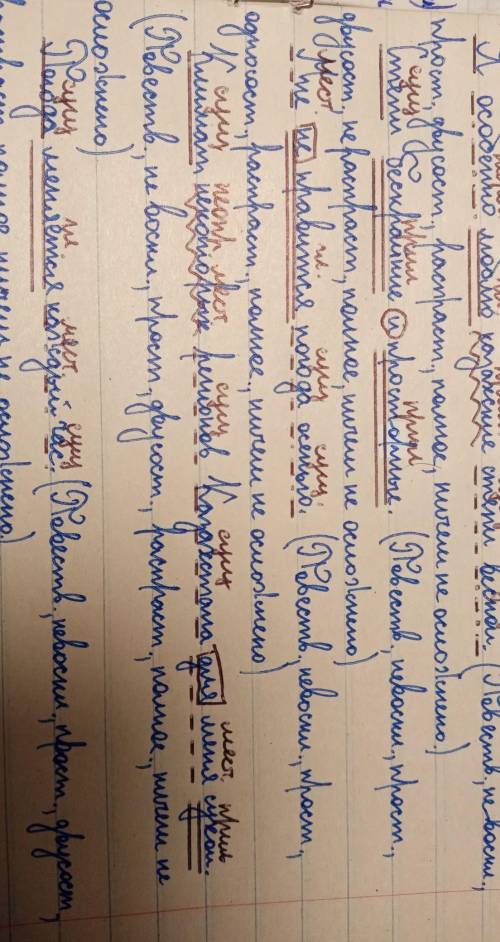 Я особенно люблю казахские степи весной. (Повеств., не восл.,
прост., двусост., распрост., полное, ничем не осложнено.)
сущ. прил. прил.
Степи бескрайние и просторные. (Повеств., невосл., прост.,
двусост., нераспрост., полное, ничем не осложнено)
мест. гл. сущ. сущ.
Мне не нравится погода осенью. (Повеств., невосл., прост.,
односост., распрост., полное, ничем не осложнено)
сущ. неопр. мест. сущ. сущ. мест. прил.
Климат некоторых регионов Казахстана для меня сухой.
(Повеств., не восл., прост., двусост., распрост., полное, ничем не
осложнено)
сущ. гл. мест. сущ.
Погода меняется каждый час. (Повеств., невосл., прост., двусост.,
полное, ничем не осложнено)